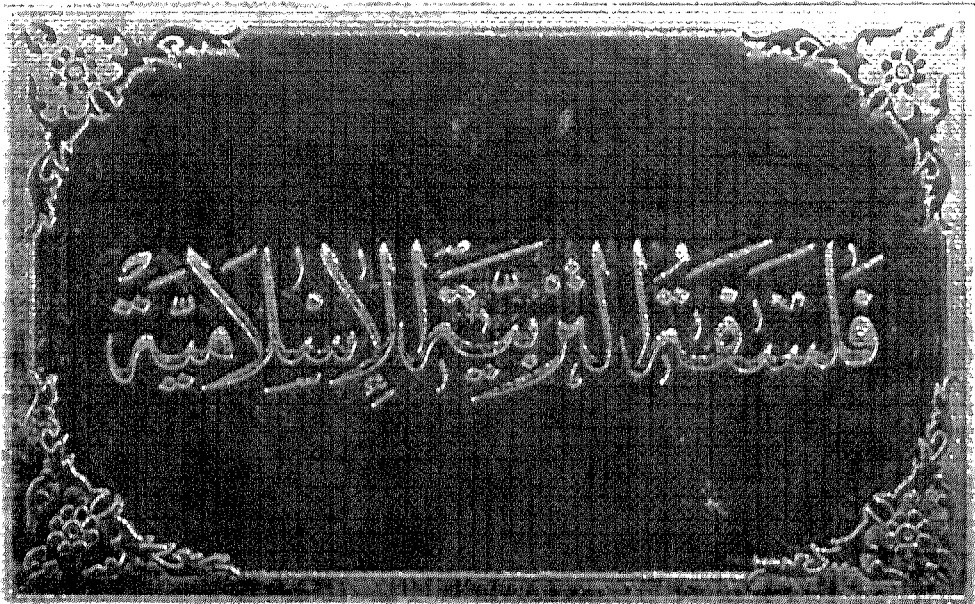 فلسفة التربية الإسلامية